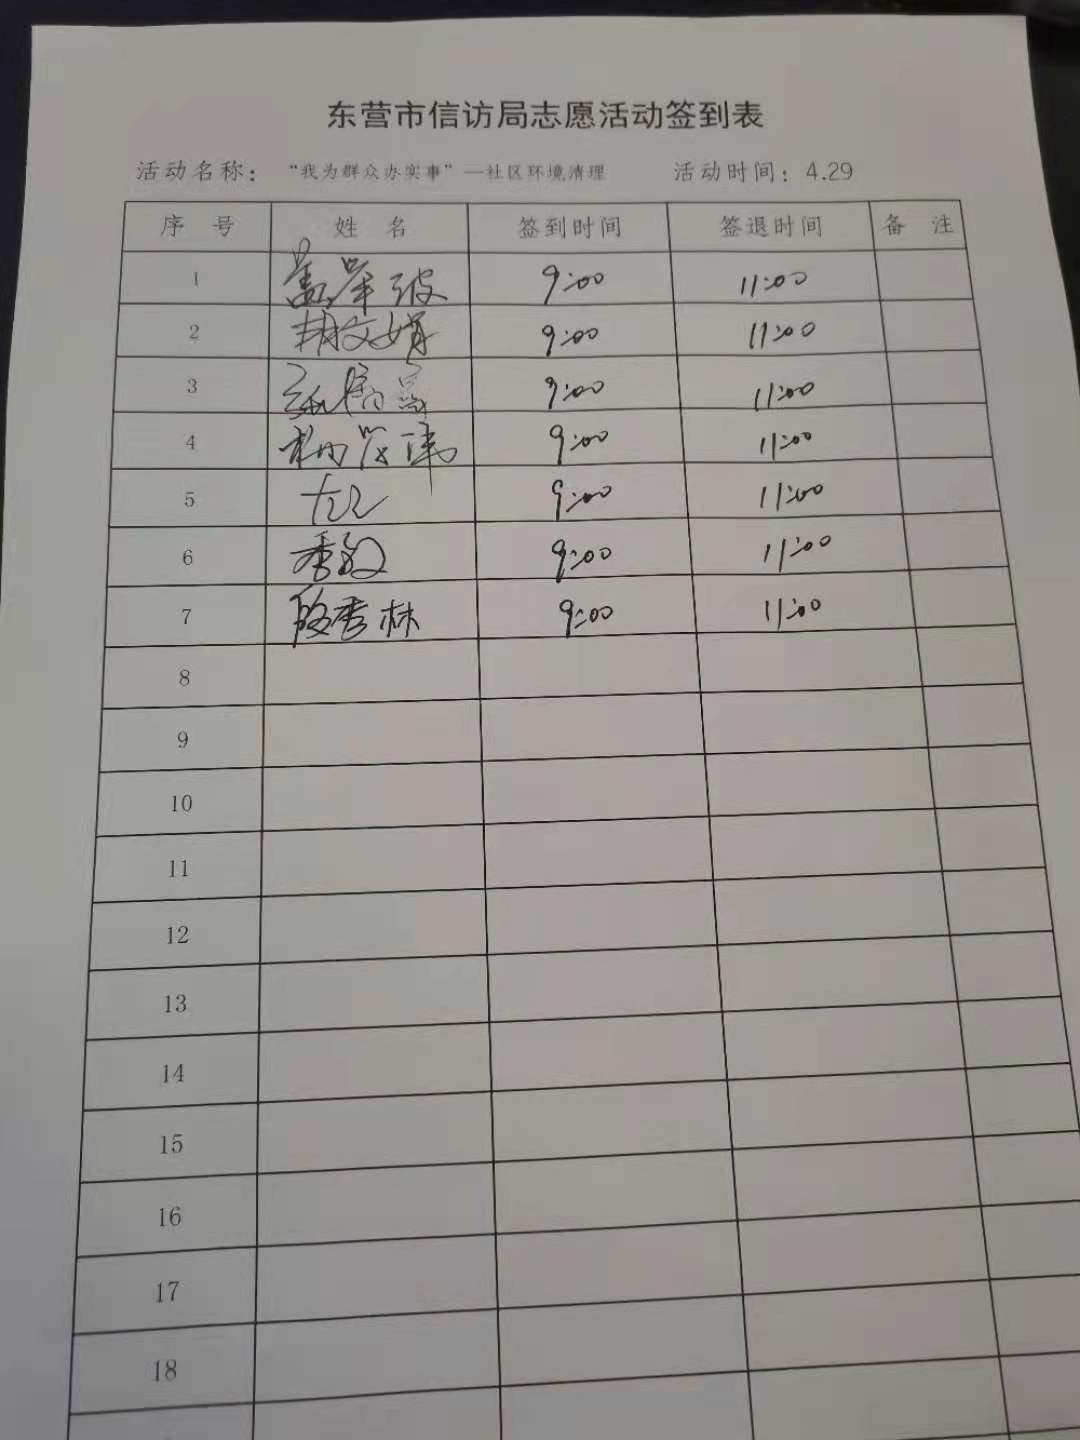 东营市信访局志愿活动签到表
活动名称： “我为群众办实事”—社区环境清理 活动时间：4.29
序 号 姓 名 签到时间 签退时间 备 注
1 9:00 11:00
2 胡文娟 9:00 11:00
3 9:00 11:00
4 9:00 11:00
5 9:00 11:00
6 季敏 9:00 11:00
7 段秀林 9:00 11:00
8
9
10
11
12
13
14
15
16
17
18